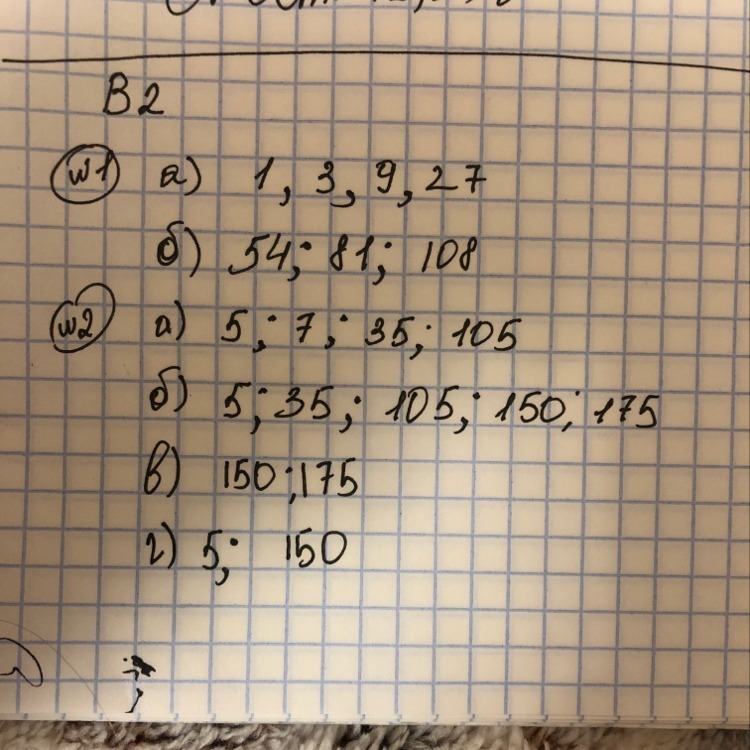 В2
№1 а) 1, 3, 9, 27
б) 54; 81; 108
№2 а) 5; 7; 35; 105
б) 5; 35; 105; 150; 175
в) 150; 175
г) 5; 150